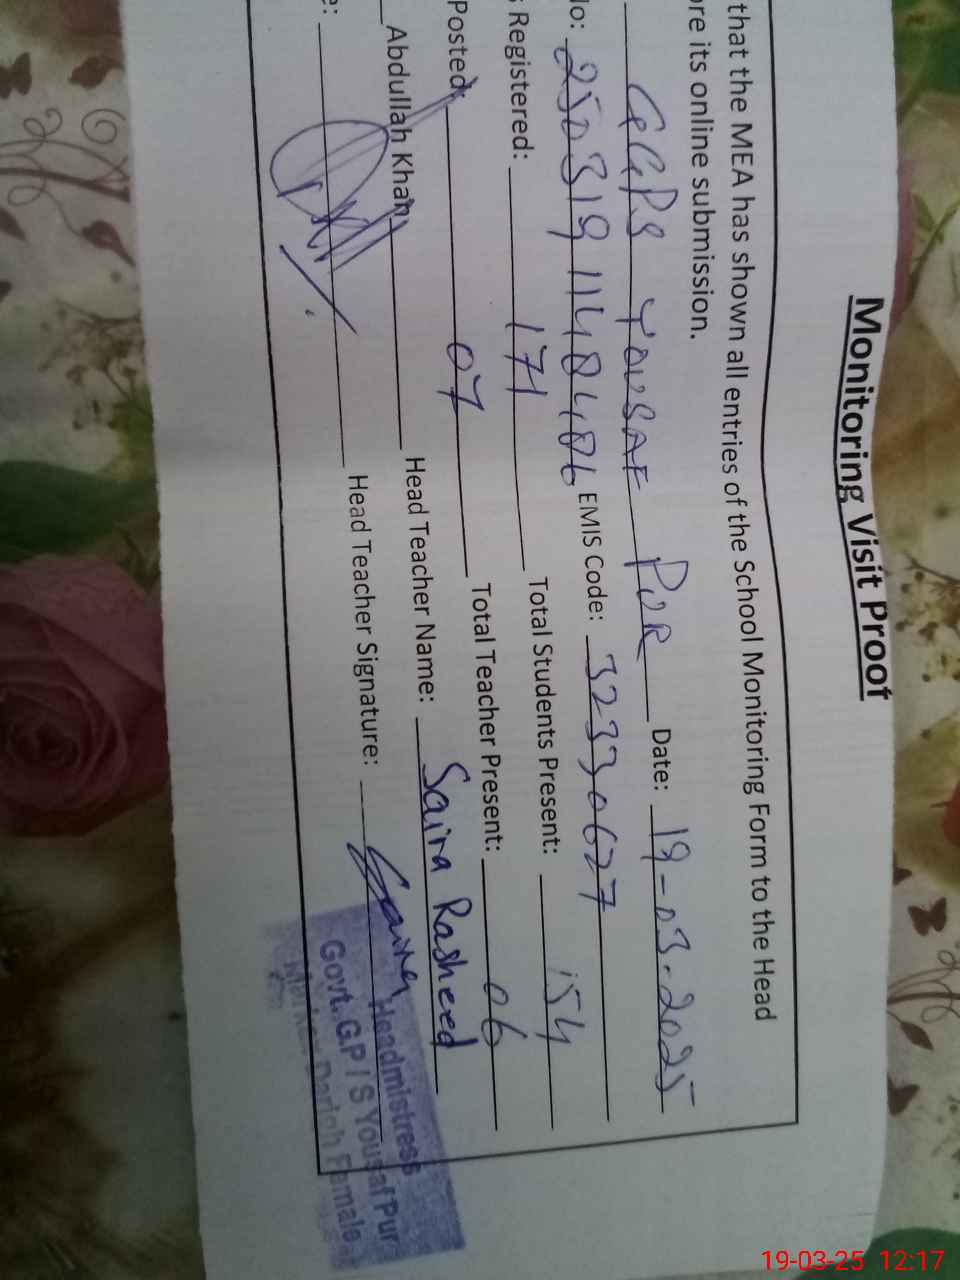 Monitoring Visit Proof
that the MEA has shown all entries of the School Monitoring Form to the Head
ore its online submission.
GGPS YOUSAF PUR Date: 19-03-2025
No: 25031911404406 EMIS Code: 32330627
s Registered: 171 Total Students Present: 154
Posted: 07 Total Teacher Present: 06
Abdullah Khan Head Teacher Name: Saira Rasheed
e: Head Teacher Signature: Saira
Headmistress
Govt. G.P / S Yousaf Pur
Female
19-03-25 12:17